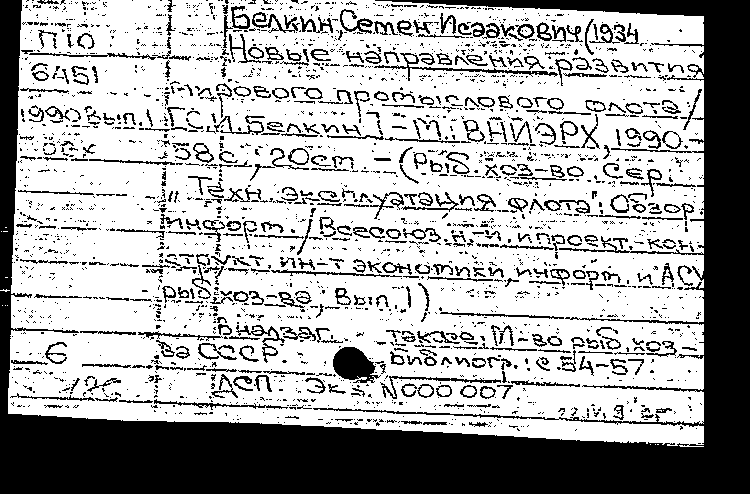 Белкин, Семен Исаакович (1934
П10 Новые направления развития
6451 мирового промыслового флота /
1990 Вып.1 [С.И. Белкин]. – М.: ВНИЭРХ, 1990. –
58 с.; 20 см. – (Рыб. хоз-во. Сер.
"Техн. эксплуатация флота": Обзор.
информ. / Всесоюз. н.-и. и проект.-кон-
структ. ин-т экономики, информ. и АСУ
рыб. хоз-ва; Вып. 1).
В надзаг. также: М-во рыб. хоз-
6 ва СССР. Библиогр.: с. 54-57.
ДСП. Экз. N000 007